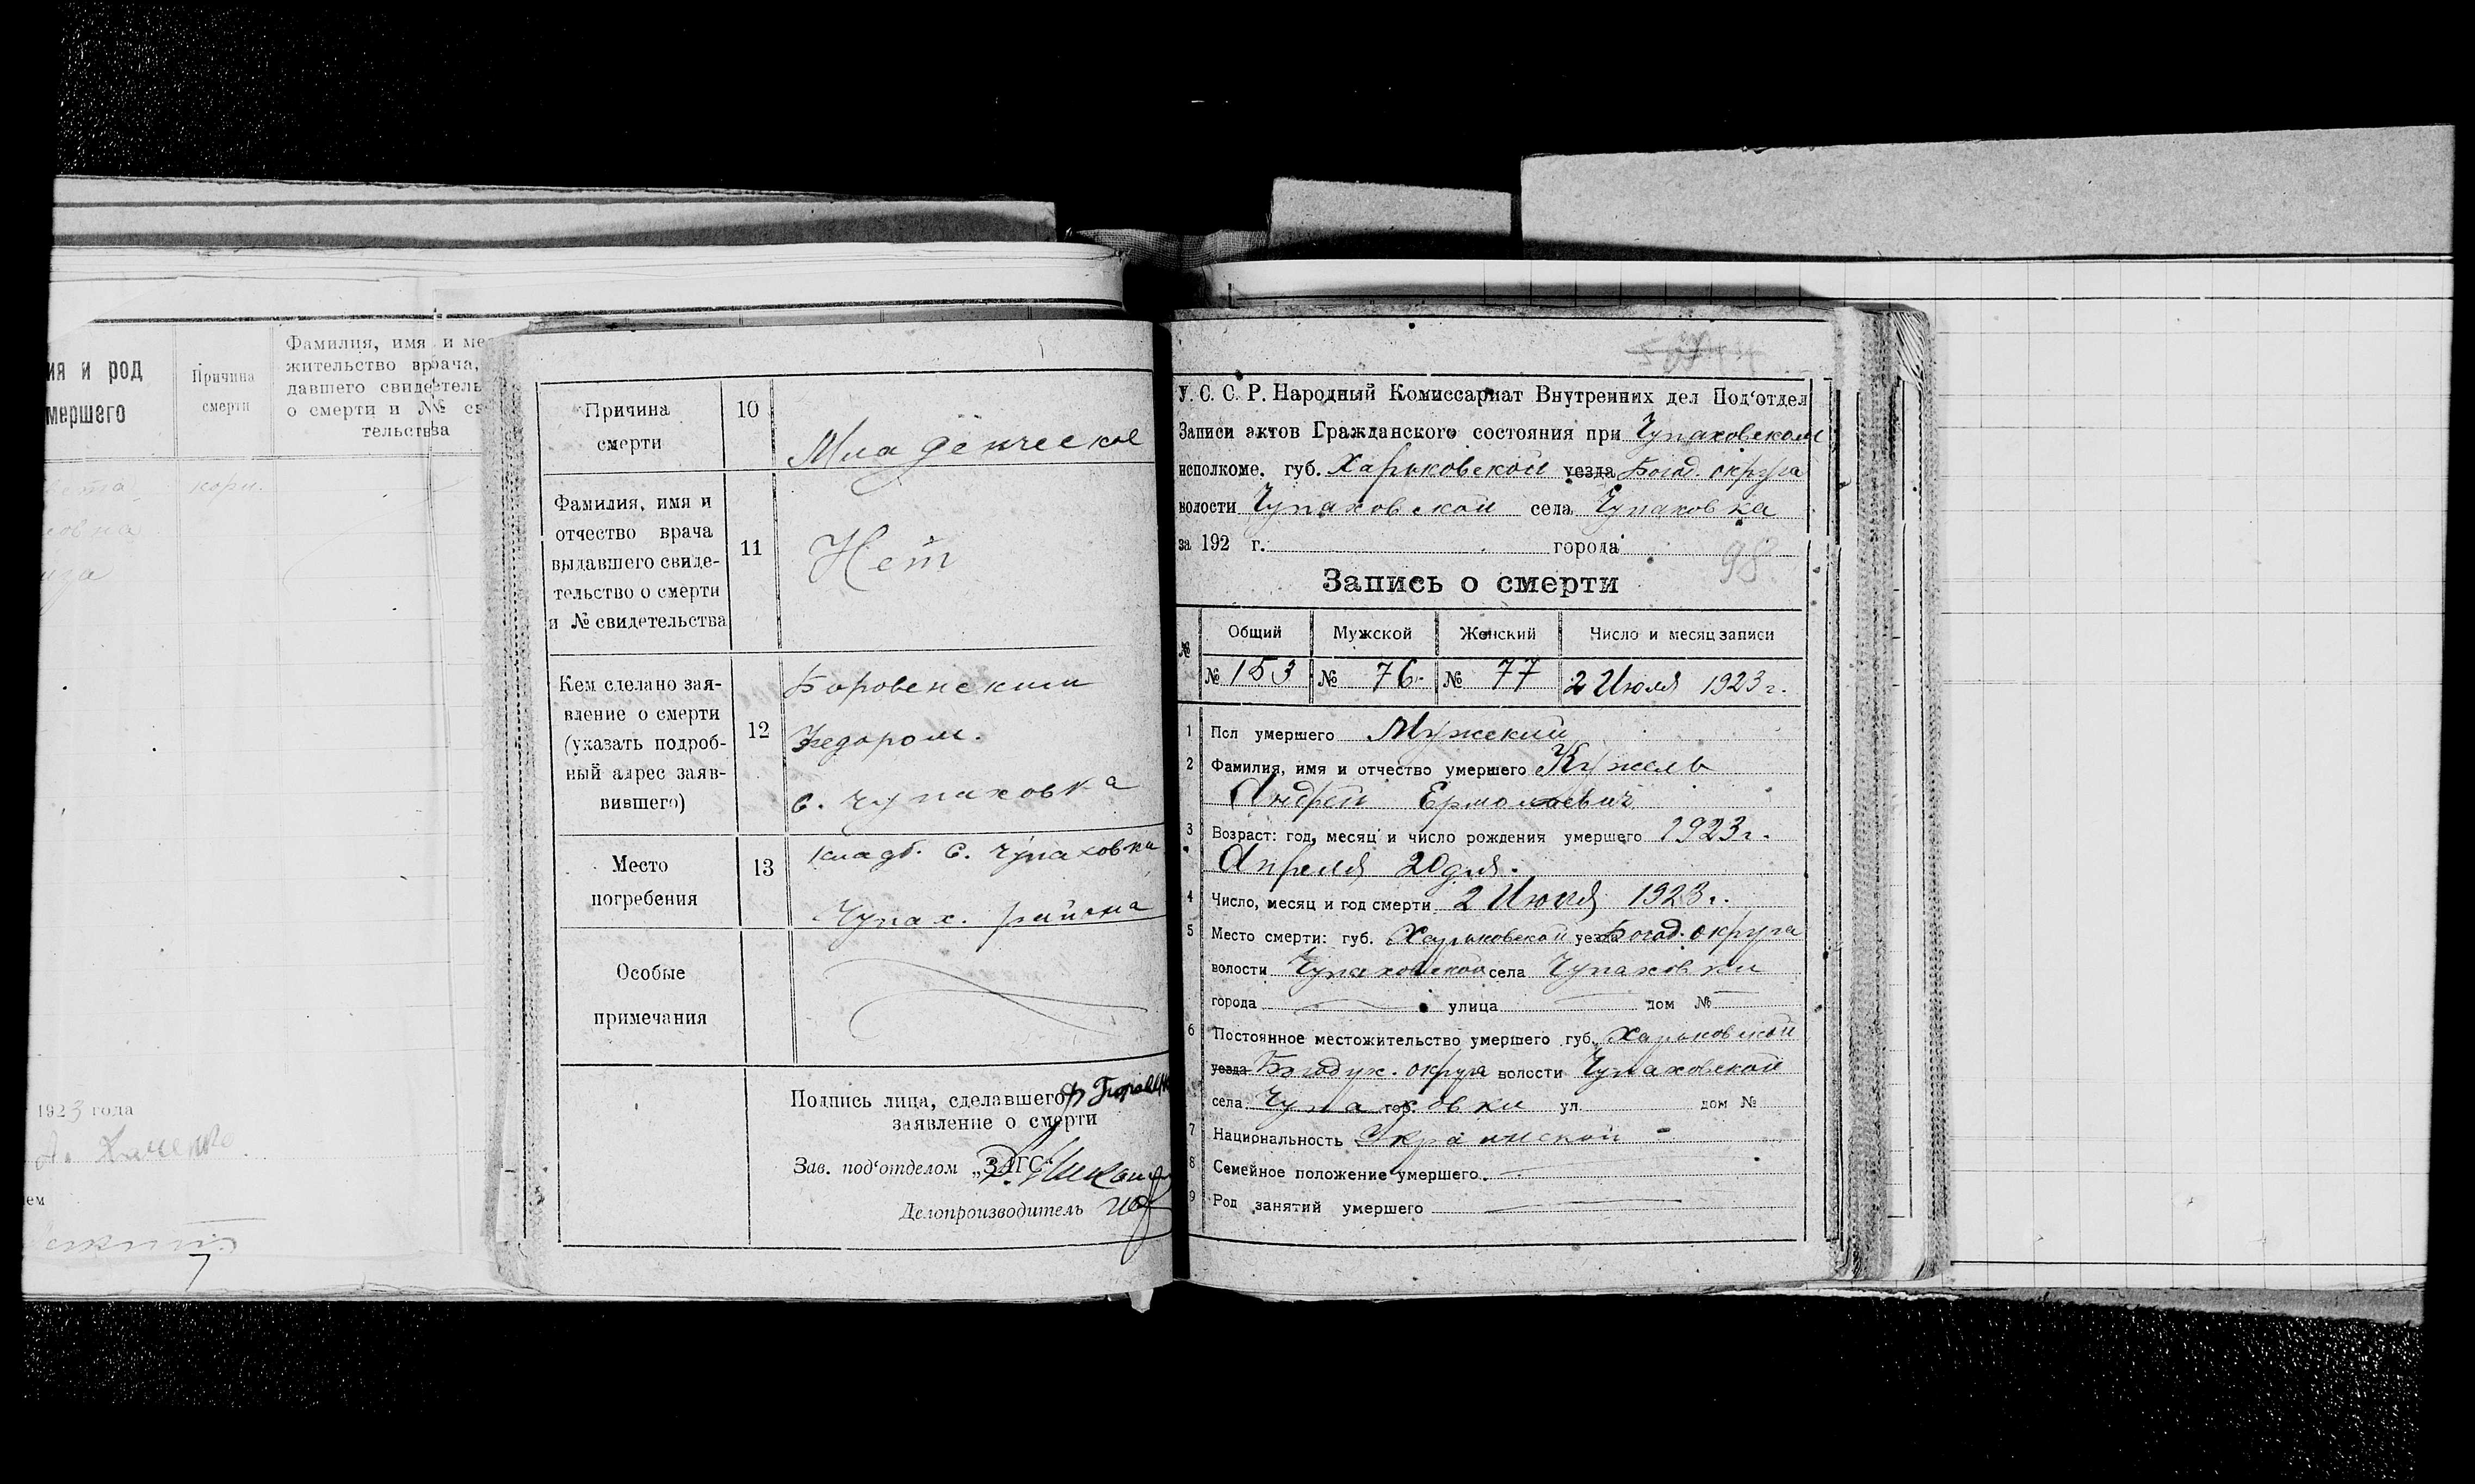 ия и род
мершего
Причина
смерти
Фамилия, имя и ме
жительство врача,
давшего свидетель
о смерти и № св
тельства
кори.
овна
1923 года
ем
Причина
смерти
10
Младенческое
Фамилия, имя и
отчество врача
выдавшего свиде-
тельство о смерти
и № свидетельства
11
Нет
Кем сделано зая-
вление о смерти
(указать подроб-
ный адрес заяв-
вившего)
12
Боровенским
Федором.
с. Чупаховка
Место
погребения
13
кладб. с. Чупаховки
Чупах. района
Особые
примечания
Подпись лица, сделавшего
заявление о смерти
Зав. под‘отделом „ЗАГС“
Делопроизводитель
У. С. С. Р. Народный Комиссариат Внутренних дел Под‘отдел
Записи актов Гражданского состояния при Чупаховском
исполкоме. губ. Харьковской уезда Богод. округа
волости Чупаховской села Чупаховка
за 192 г. города
98
Запись о смерти
№ Общий Мужской Женский Число и месяц записи
№ 153 № 76. № 77 2 Июля 1923 г.
1 Пол умершего Мужский
2 Фамилия, имя и отчество умершего Кужель
Андрей Ермолаевич
3 Возраст: год, месяц и число рождения умершего 1923 г.
Апреля 20 дня.
4 Число, месяц и год смерти 2 Июля 1923 г.
5 Место смерти: губ. Харьковской уезда Богод. округа
волости Чупаховской села Чупаховки
города улица дом №
6 Постоянное местожительство умершего губ. Харьковской
уезда Богодух. округа волости Чупаховской
села Чупаховки гор. ул. дом №
7 Национальность Украинской
8 Семейное положение умершего.
9 Род занятий умершего